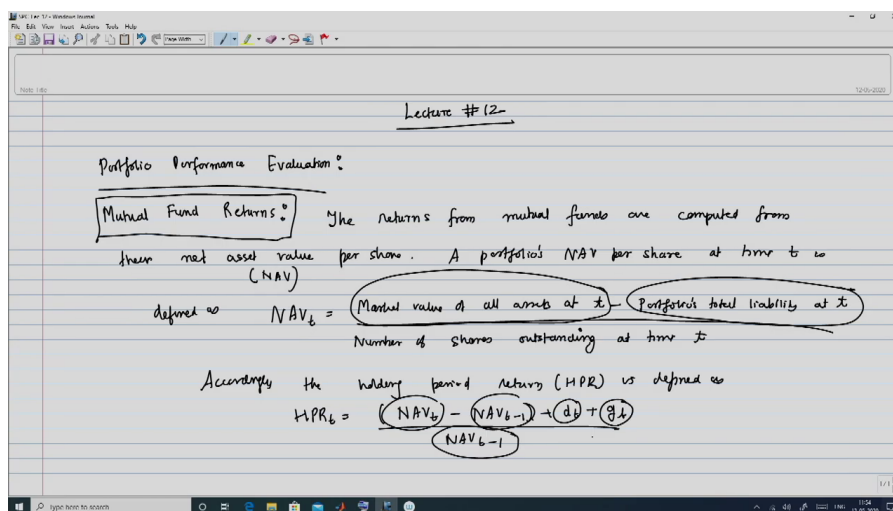 SPC Lec 12 - Windows Journal
File Edit View Insert Actions Tools Help
Page Width
Note Title
12-05-2020
Lecture #12
Portfolio Performance Evaluation:
Mutual Fund Returns: The returns from mutual funds are computed from
their net asset value per share. A portfolio's NAV per share at time t is
(NAV)
defined as NAV_t = Market value of all assets at t - Portfolio's total liability at t
Number of shares outstanding at time t
Accordingly the holding period return (HPR) is defined as
HPR_t = (NAV_t - NAV_{t-1}) + d_t + g_t
NAV_{t-1}
1/1
Type here to search
11:54
ENG